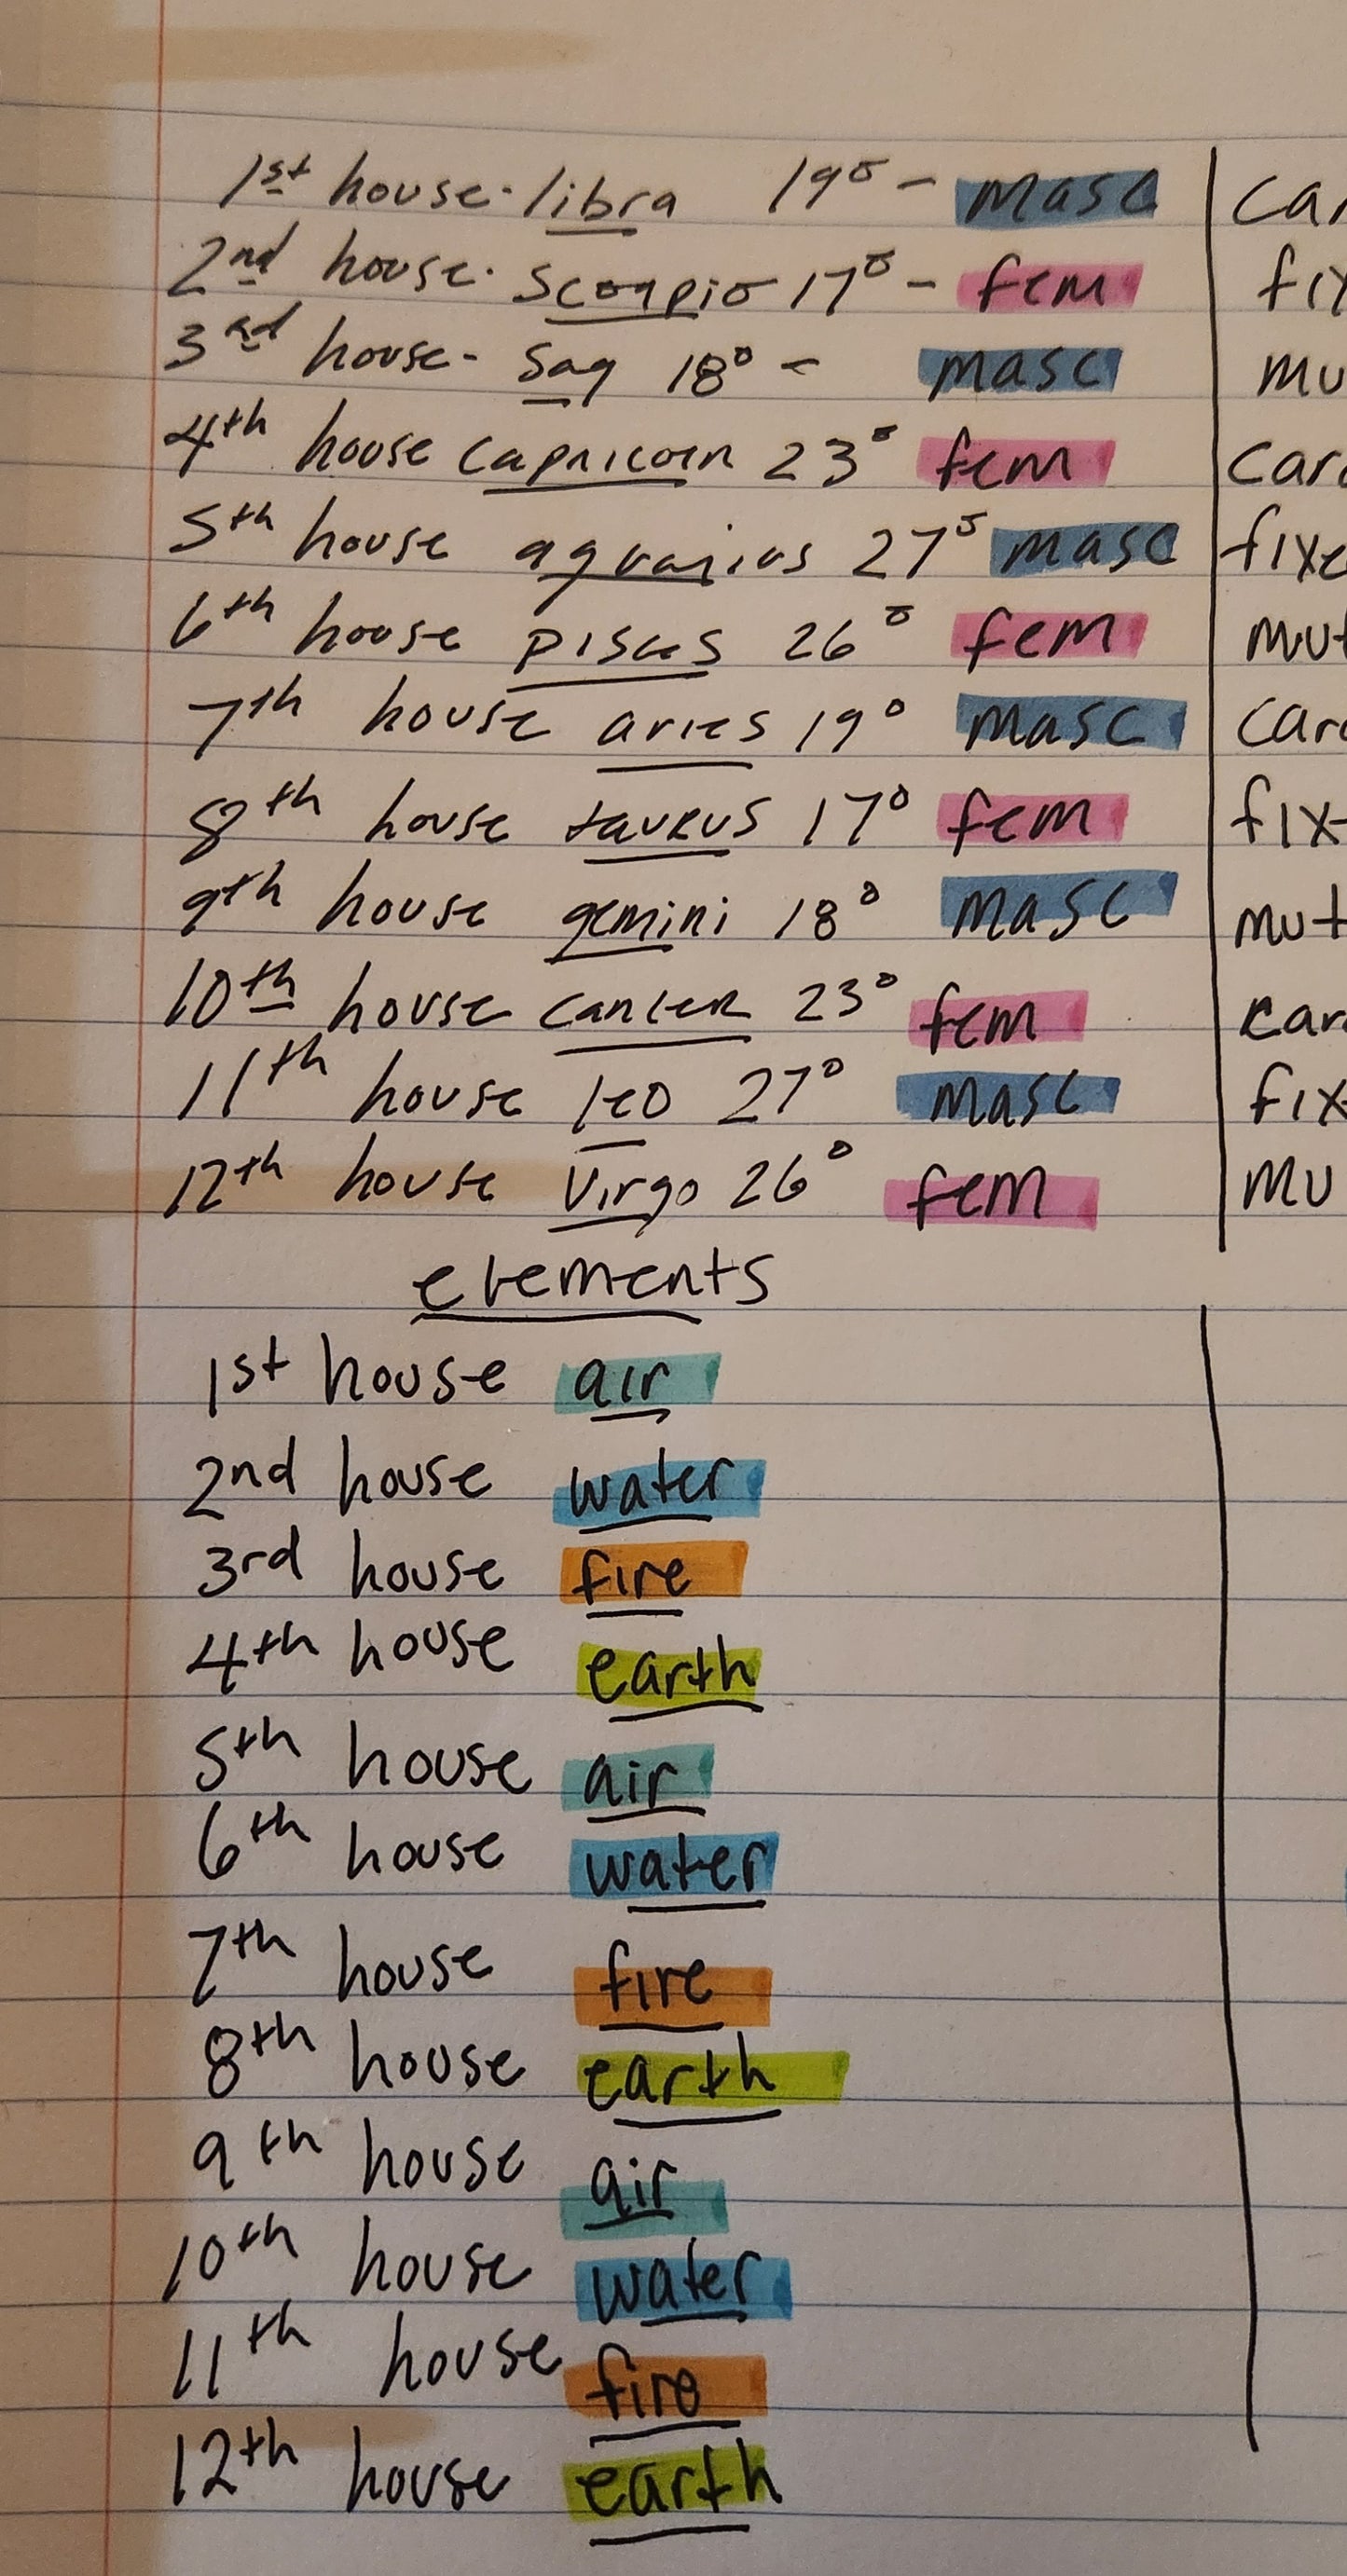 1st house - libra 19° - masc | car
2nd house - Scorpio 17° - fem fix
3rd house - Sag 18° - masc mu
4th house capricorn 23° fem card
5th house aquarius 27° masc fixe
6th house pisces 26° fem mut
7th house aries 19° masc card
8th house taurus 17° fem fix
9th house gemini 18° masc mut
10th house cancer 23° fem card
11th house leo 27° masc fix
12th house Virgo 26° fem mu
elements
1st house air
2nd house water
3rd house fire
4th house earth
5th house air
6th house water
7th house fire
8th house earth
9th house air
10th house water
11th house fire
12th house earth